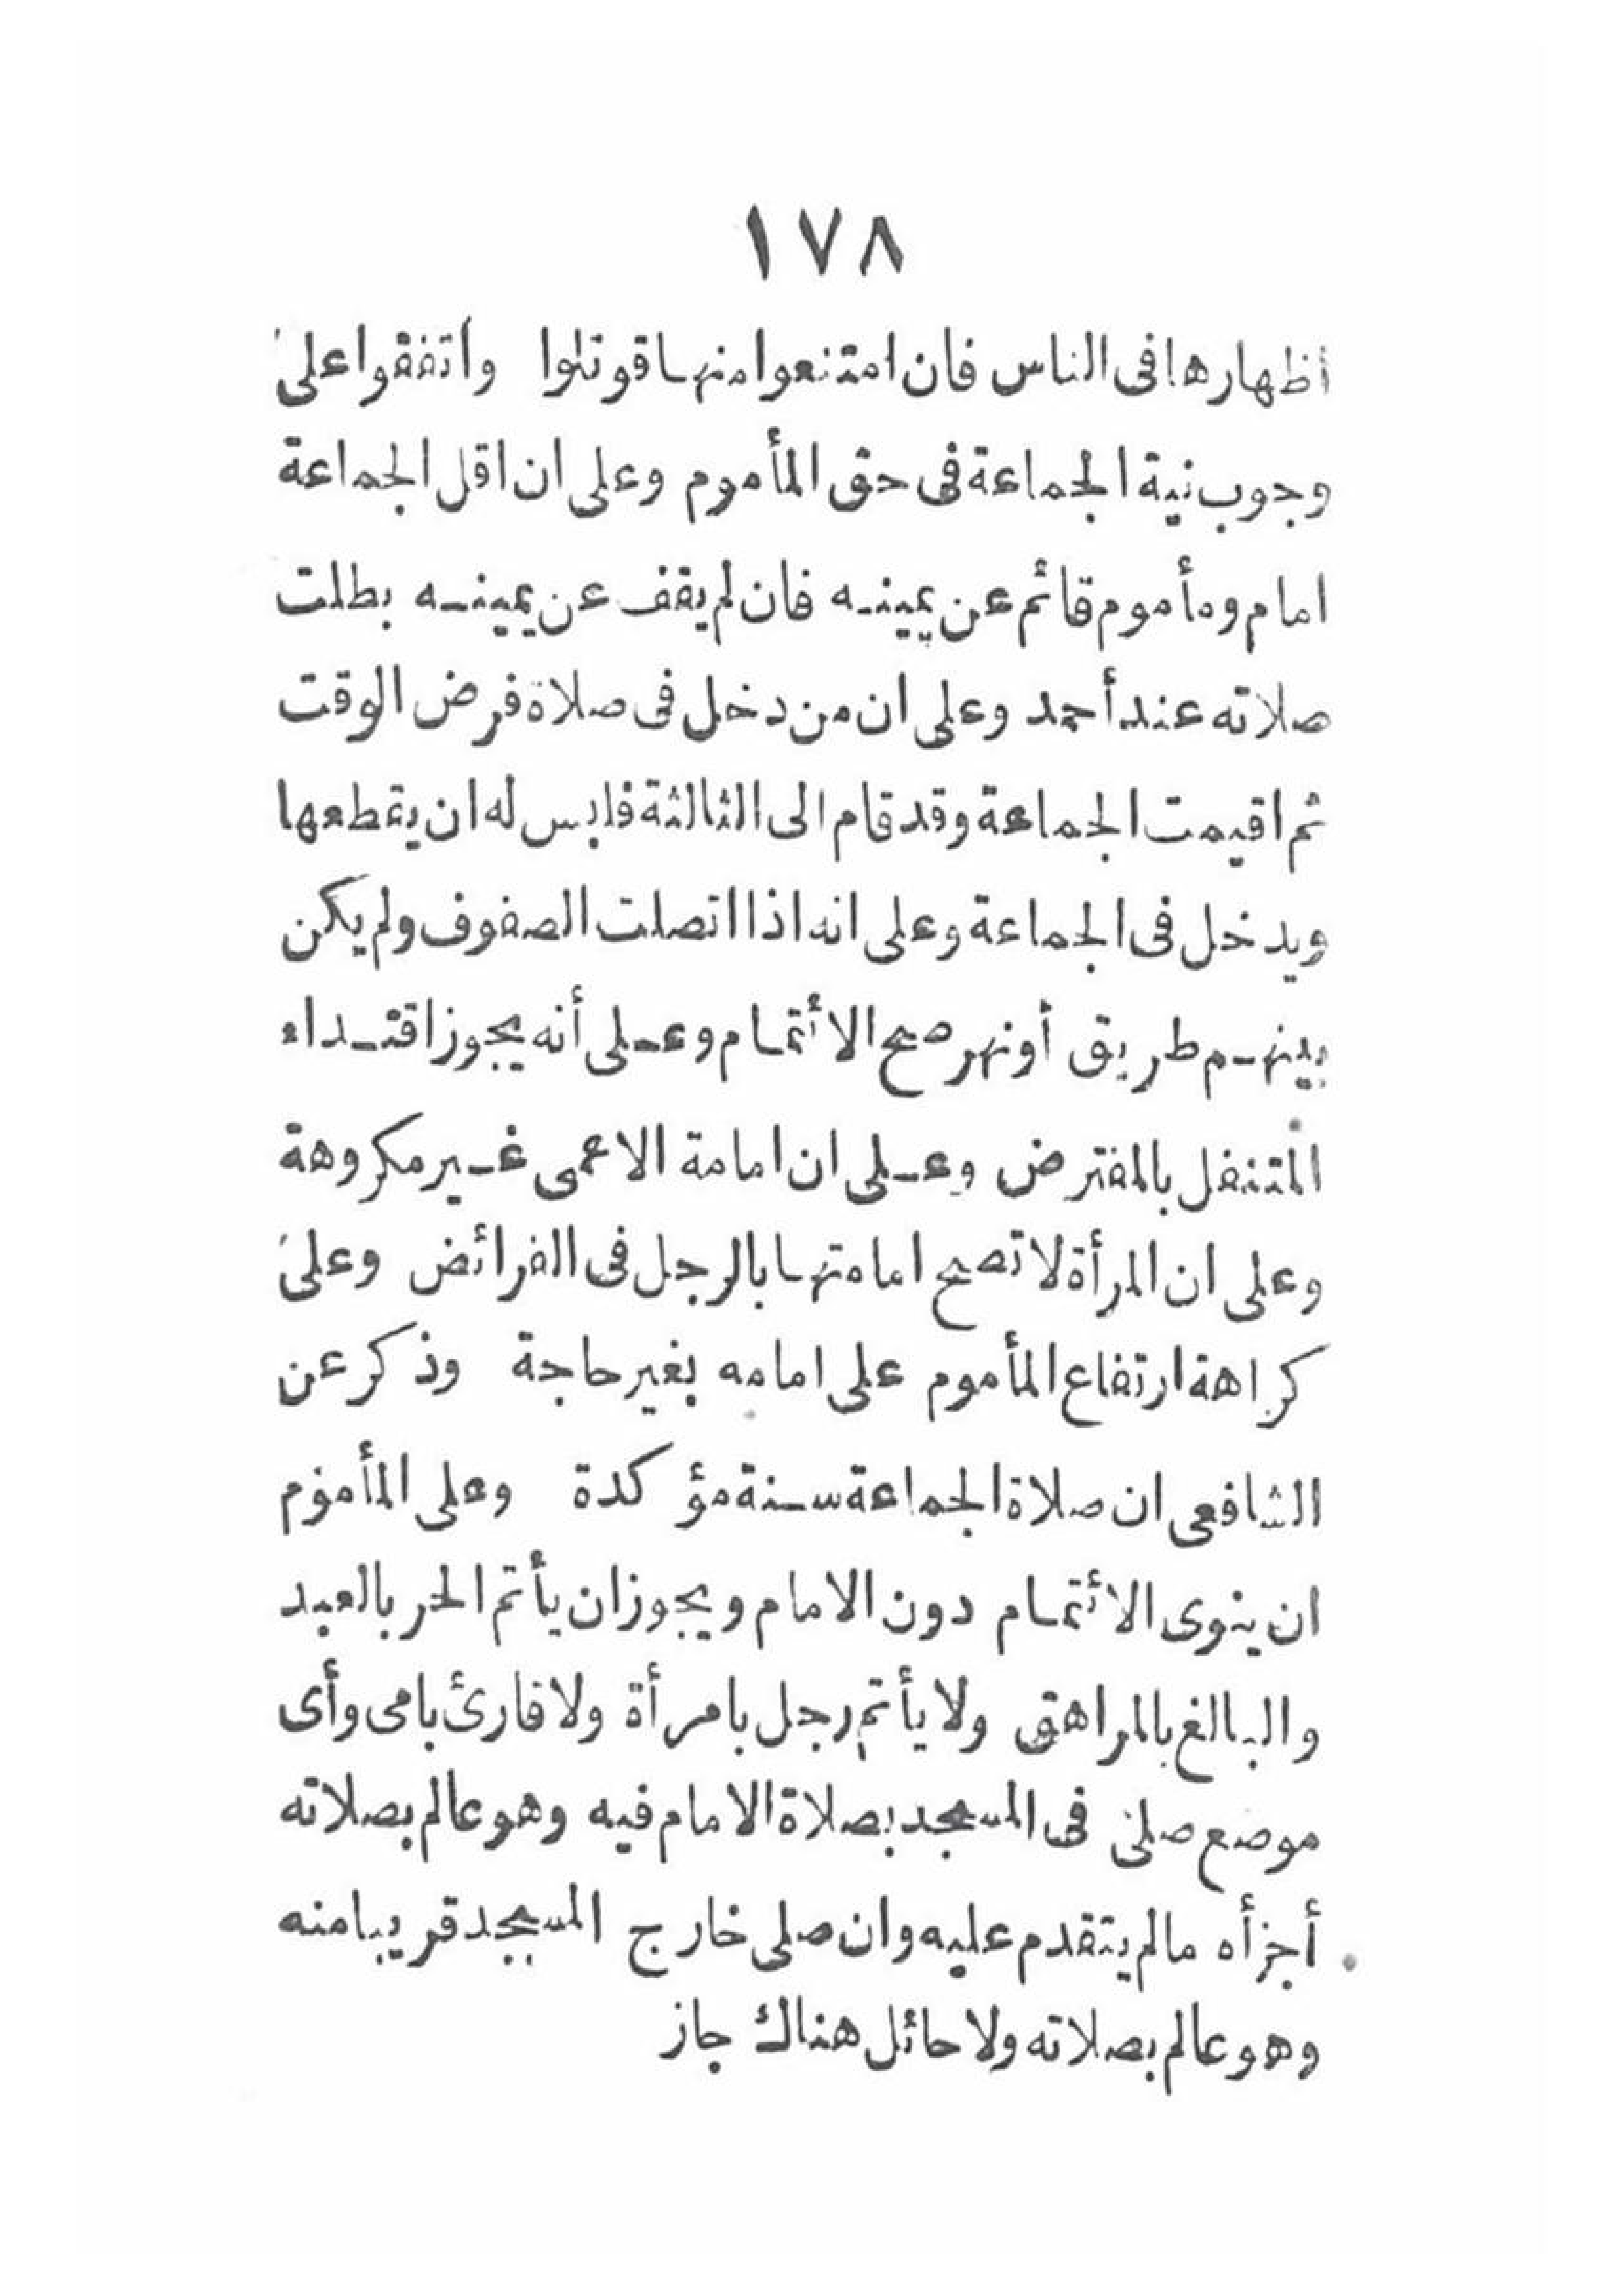 ١٧٨
أظهارها فى الناس فان امتنعوا منها قوتلوا وأتفقوا على
وجوب نية الجماعة فى حق المأموم وعلى ان اقل الجماعة
امام ومأموم قائم عن يمينه فان لم يقف عن يمينه بطلت
صلاته عند أحمد وعلى ان من دخل فى صلاة فرض الوقت
ثم اقيمت الجماعة وقد قام الى الثالثة فليس له ان يقطعها
ويدخل فى الجماعة وعلى انه اذا اتصلت الصفوف ولم يكن
بينهم طريق أو نهر صح الائتمام وعلى أنه يجوز اقتداء
المتنفل بالمفترض وعلى ان امامة الاعمى غير مكروهة
وعلى ان المرأة لا تصح امامتها بالرجل فى الفرائض وعلى
كراهة ارتفاع المأموم على امامه بغير حاجة وذكر عن
الشافعى ان صلاة الجماعة سنة مؤكدة وعلى المأموم
ان ينوى الائتمام دون الامام ويجوز ان يأتم الحر بالعبد
والبالغ بالمراهق ولا يأتم رجل بامرأة ولا قارئ بامى وأى
موضع صلى فى المسجد بصلاة الامام فيه وهو عالم بصلاته
أجزأه مالم يتقدم عليه وان صلى خارج المسجد قريبا منه
وهو عالم بصلاته ولا حائل هناك جاز